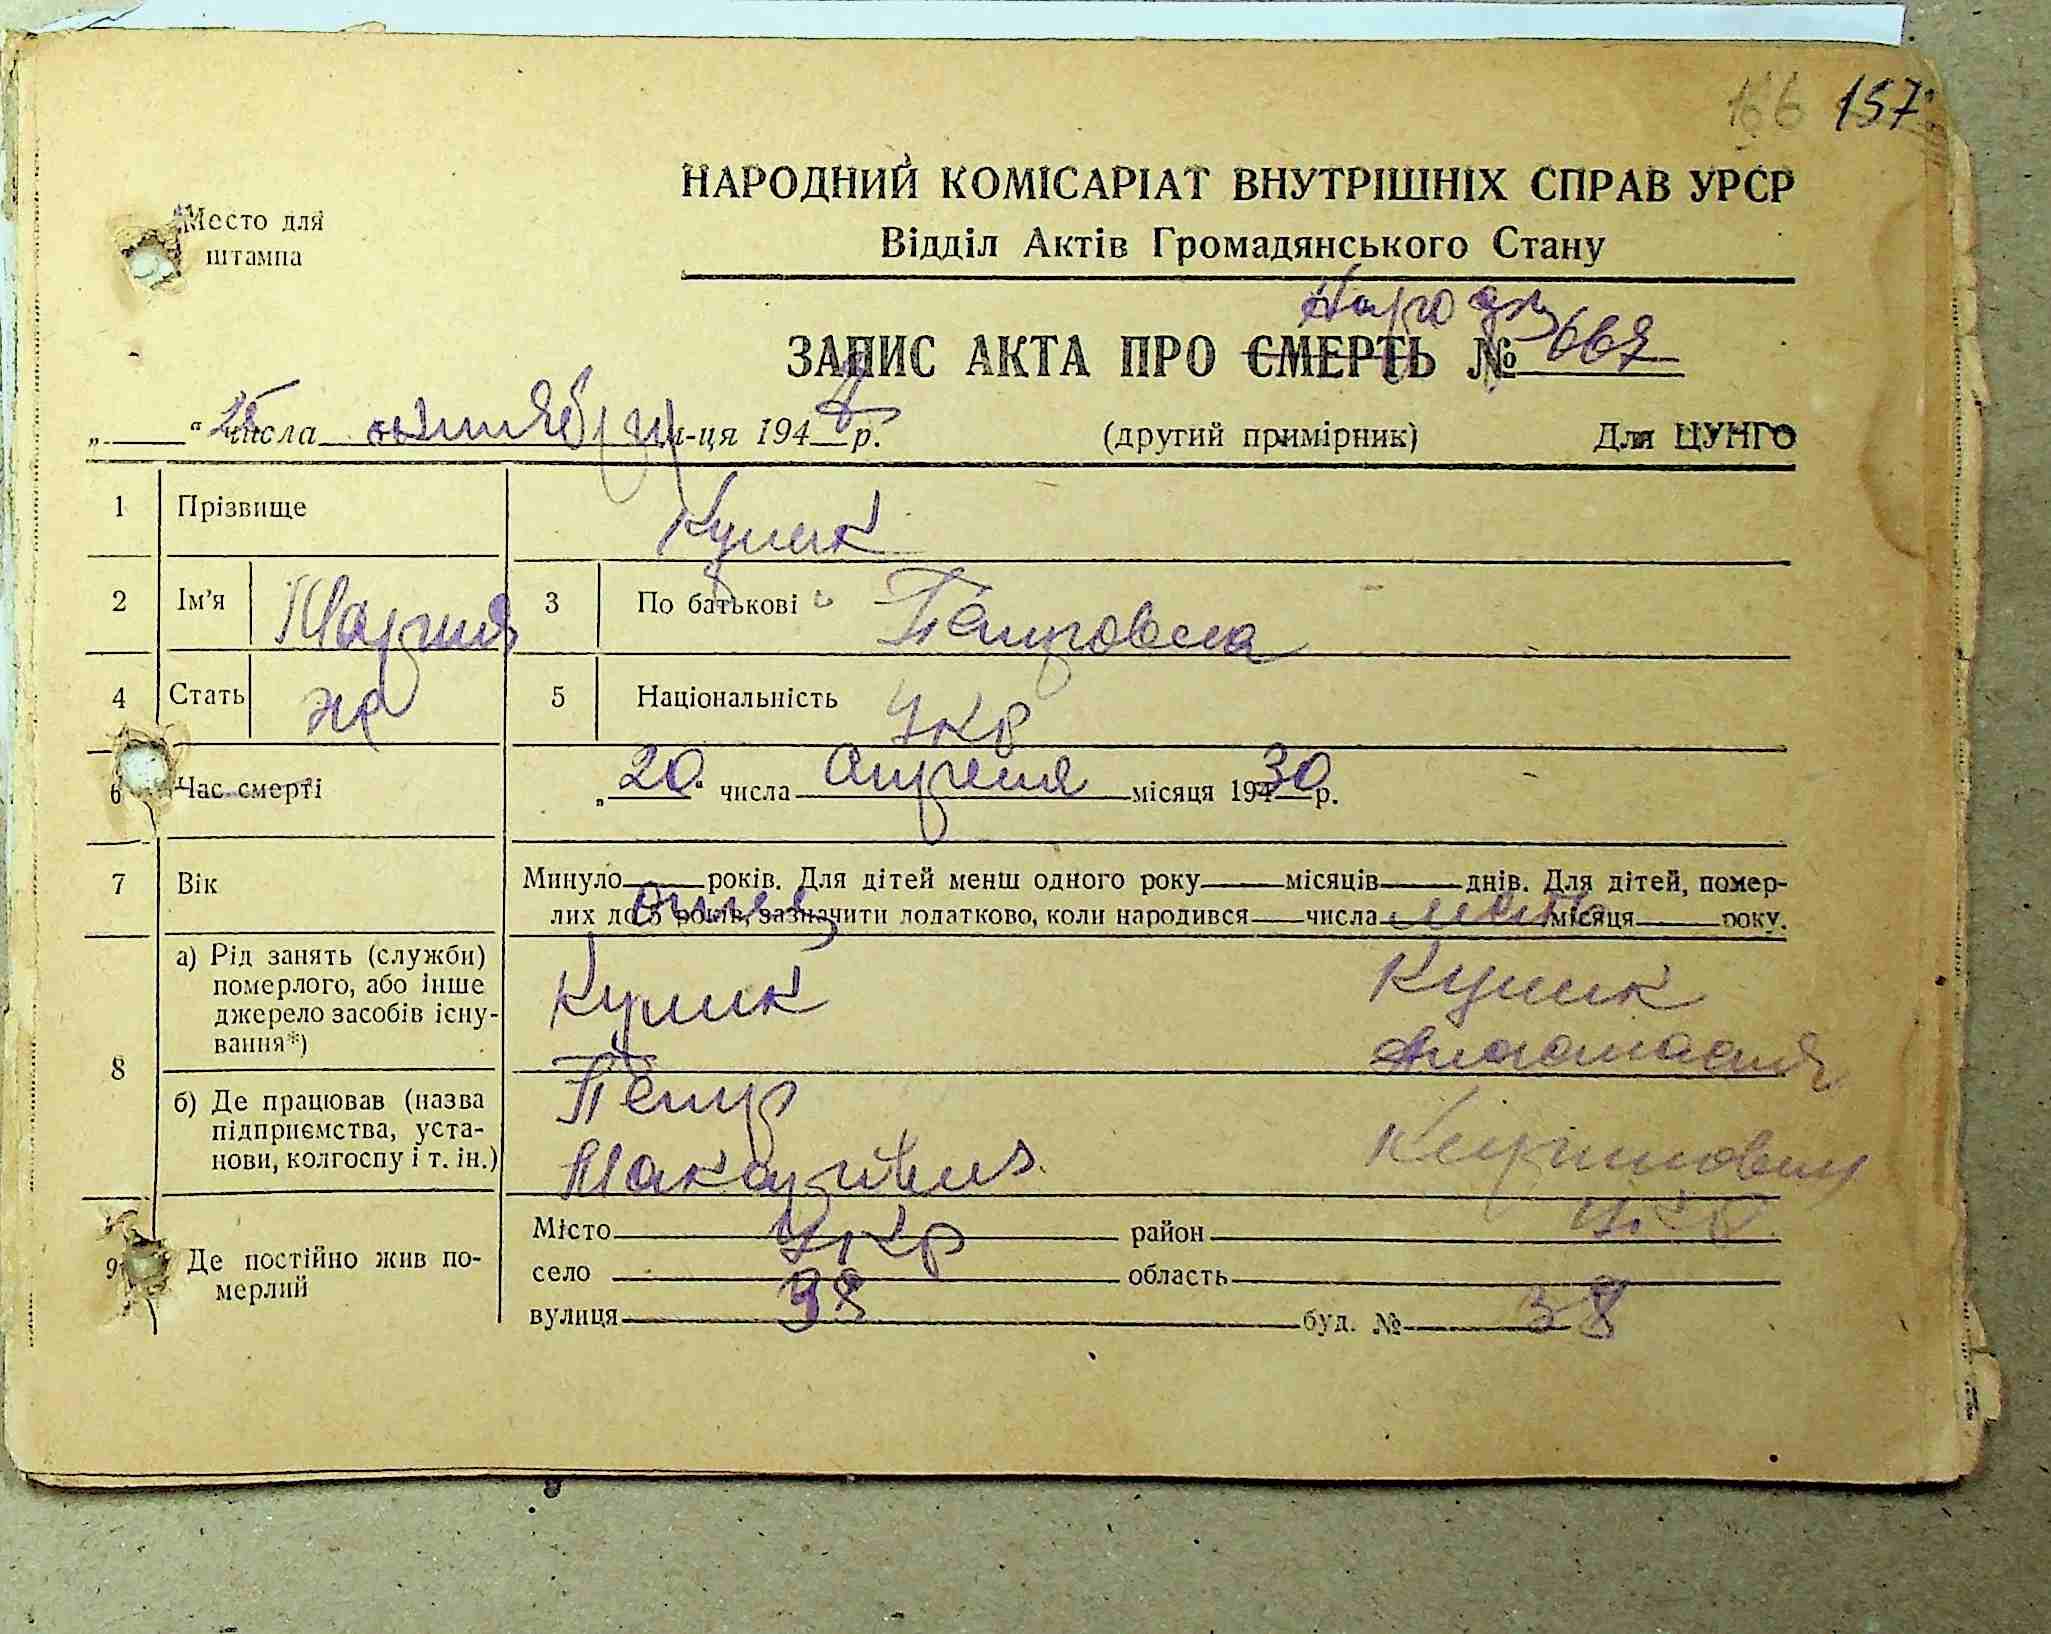 166 157
Место для
штампа
НАРОДНИЙ КОМІСАРІАТ ВНУТРІШНІХ СПРАВ УРСР
Відділ Актів Громадянського Стану
ЗАПИС АКТА ПРО СМЕРТЬ №
„ “ 25 числа октября м-ця 194 р. (другий примірник) Для ЦУНГО
1 Прізвище Кулик
2 Ім’я Мария 3 По батькові Петровна
4 Стать ж 5 Національність Укр
6 Час смерті „20“ числа Апреля місяця 1930 р.
7 Вік Минуло років. Для дітей менш одного року місяців днів. Для дітей, помер-
лих до 5 років, зазначити додатково, коли народився числа місяця року.
отец мать
8 а) Рід занять (служби)
померлого, або інше
джерело засобів існу-
вання*)
Кулик Кулик
Анастасия
б) Де працював (назва
підприємства, уста-
нови, колгоспу і т. ін.)
Петр
Макарович Кирилловна
9 Де постійно жив по-
мерлий
Місто Укр район Укр
село область
вулиця 38 буд. № 38